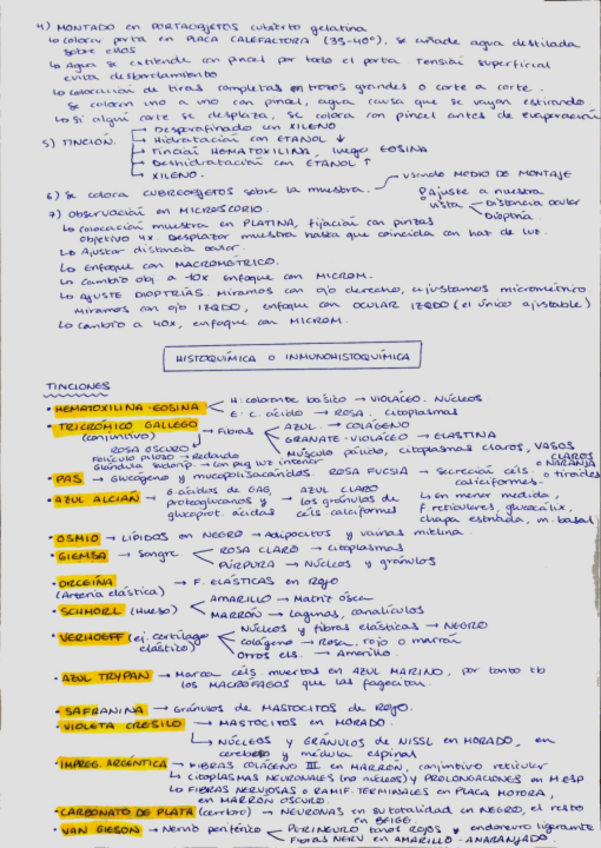 4) MONTADO en PORTAOBJETOS cubierto gelatina
↳ colocar porta en PLACA CALEFACTORA (35-40º), se añade agua destilada
sobre ellos
↳ Agua se extiende con pincel por todo el porta. Tensión superficial
evita desbordamiento
↳ colocación de tiras completas en trozos grandes o corte a corte.
Se colocan uno a uno con pincel, agua causa que se vayan estirando.
↳ Si algún corte se desplaza, se coloca con pincel antes de evaporación
5) TINCIÓN.
Desparafinado con XILENO
Hidratación con ETANOL ↓
Tinción HEMATOXILINA, luego EOSINA
Deshidratación con ETANOL ↑
XILENO.
6) Se coloca CUBREOBJETOS sobre la muestra. usando MEDIO DE MONTAJE
7) Observación en MICROSCOPIO.
Ajuste a nuestra
vista
Distancia ocular
Dioptría.
↳ colocación muestra en PLATINA, fijación con pinzas
Objetivo 4x. Desplazar muestra hasta que coincida con haz de luz.
↳ Ajustar distancia ocular.
↳ Enfoque con MACROMÉTRICO.
↳ cambio obj. a 10x enfoque con MICROM.
↳ AJUSTE DIOPTRÍAS. Miramos con ojo derecho, ajustamos micrométrico.
Miramos con ojo IZQDO, enfoque con OCULAR IZQDO (el único ajustable)
↳ cambio a 40x, enfoque con MICROM.
HISTOQUÍMICA O INMUNOHISTOQUÍMICA
TINCIONES
• HEMATOXILINA-EOSINA
H: colorante básico → VIOLÁCEO. Núcleos
E: c. ácido → ROSA. citoplasmas
• TRICRÓMICO GALLEGO → Fibras
(conjuntivo)
AZUL → COLÁGENO
GRANATE-VIOLÁCEO → ELASTINA
Músculo pálido, citoplasmas claros, VASOS CLAROS
ROSA OSCURO
Folículo piloso → Redondo
Glándula sudoríp. → con peq luz interior
• PAS → Glucógeno y mucopolisacáridos. ROSA FUCSIA → secreción céls. caliciformes. o NARANJA o tiroides
• AZUL ALCIÁN → G. ácidos de GAG, proteoglucanos y glucoprot. ácidas
→ AZUL CLARO los gránulos de céls. caliciformes
↳ en menor medida, f. reticulares, glucocálix, chapa estriada, m. basal
• OSMIO → LÍPIDOS en NEGRO → Adipocitos y vainas mielina.
• GIEMSA → Sangre
ROSA CLARO → citoplasmas
PÚRPURA → Núcleos y gránulos
• ORCEÍNA → F. ELÁSTICAS en ROJO
(Arteria elástica)
• SCHMORL (Hueso)
AMARILLO → Matriz ósea
MARRÓN → lagunas, canalículos
• VERHOEFF (ej. cartílago elástico)
Núcleos y fibras elásticas → NEGRO
colágeno → Rosa, rojo o marrón
Otros els. → Amarillo.
• AZUL TRYPAN → Marca céls. muertas en AZUL MARINO, por tanto tb
los MACRÓFAGOS que las fagocitan.
• SAFRANINA → Gránulos de MASTOCITOS de ROJO.
• VIOLETA CRESILO → MASTOCITOS en MORADO.
↳ NÚCLEOS Y GRÁNULOS de NISSL en MORADO, en
cerebelo y médula espinal
• IMPREG. ARGÉNTICA → FIBRAS COLÁGENO III en MARRÓN, conjuntivo reticular
↳ CITOPLASMAS NEURONALES (no núcleos) y PROLONGACIONES en M.ESP
↳ FIBRAS NERVIOSAS o RAMIF. TERMINALES en PLACA MOTORA,
en MARRÓN OSCURO.
• CARBONATO DE PLATA (cerebro) → NEURONAS en su totalidad en NEGRO, el resto
en BEIGE.
• VAN GIESON → Nervio periférico
PERINEURO tonos ROJOS y endoneuro ligeramente
Fibras NERV en AMARILLO-ANARANJADO.